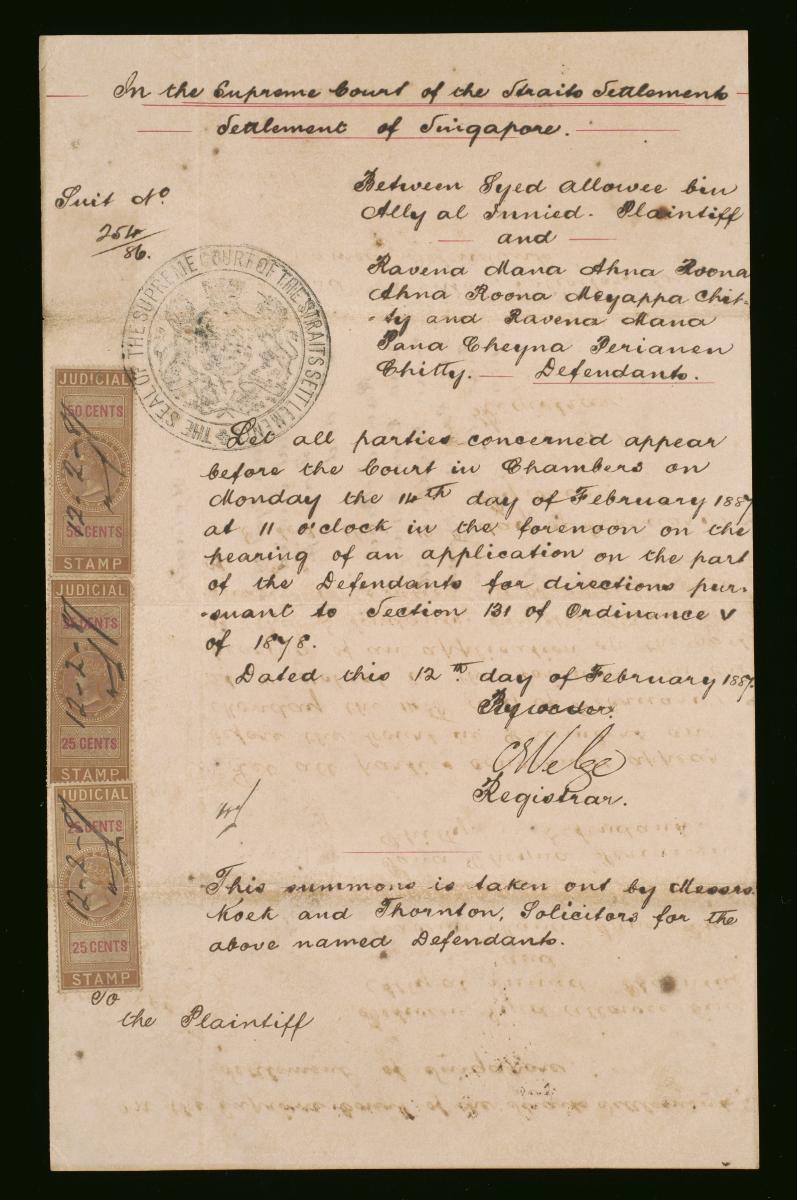 In the Supreme Court of the Straits Settlements
Settlement of Singapore.
Suit No.
254/86.
Between Syed Allowee bin
Ally al Junied. Plaintiff
and
Ravena Mana Ahna Roona
Ahna Roona Meyappa Chit-
-ty and Ravena Mana
Pana Cheyna Perianen
Chitty. Defendants.
THE SEAL OF THE SUPREME COURT OF THE STRAITS SETTLEMENTS
Let all parties concerned appear
before the Court in Chambers on
Monday the 14th day of February 1887
at 11 o'clock in the forenoon on the
hearing of an application on the part
of the Defendants for directions pur-
-suant to Section 131 of Ordinance V
of 1878.
Dated this 12th day of February 1887.
By order.
Registrar.
This summons is taken out by Messrs.
Koek and Thornton, Solicitors for the
above named Defendants.
To
the Plaintiff
JUDICIAL
50 CENTS
12-2-87
50 CENTS
STAMP
JUDICIAL
25 CENTS
12-2-87
25 CENTS
STAMP
JUDICIAL
25 CENTS
12-2-87
25 CENTS
STAMP